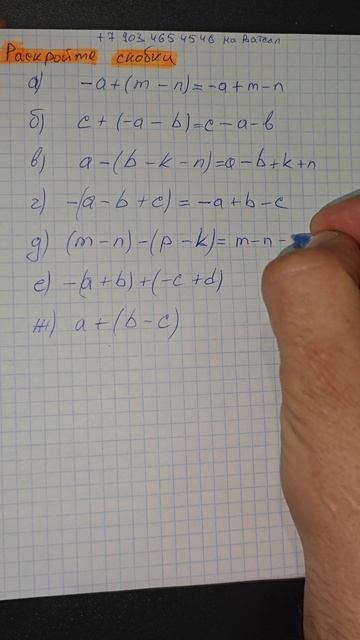 +7 903 465 45 46 на Ватсап
Раскройте скобки
а) -a+(m-n)=-a+m-n
б) c+(-a-b)=c-a-b
в) a-(b-k-n)=a-b+k+n
г) -(a-b+c)=-a+b-c
д) (m-n)-(p-k)=m-n-
е) -(a+b)+(-c+d)
ж) a+(b-c)